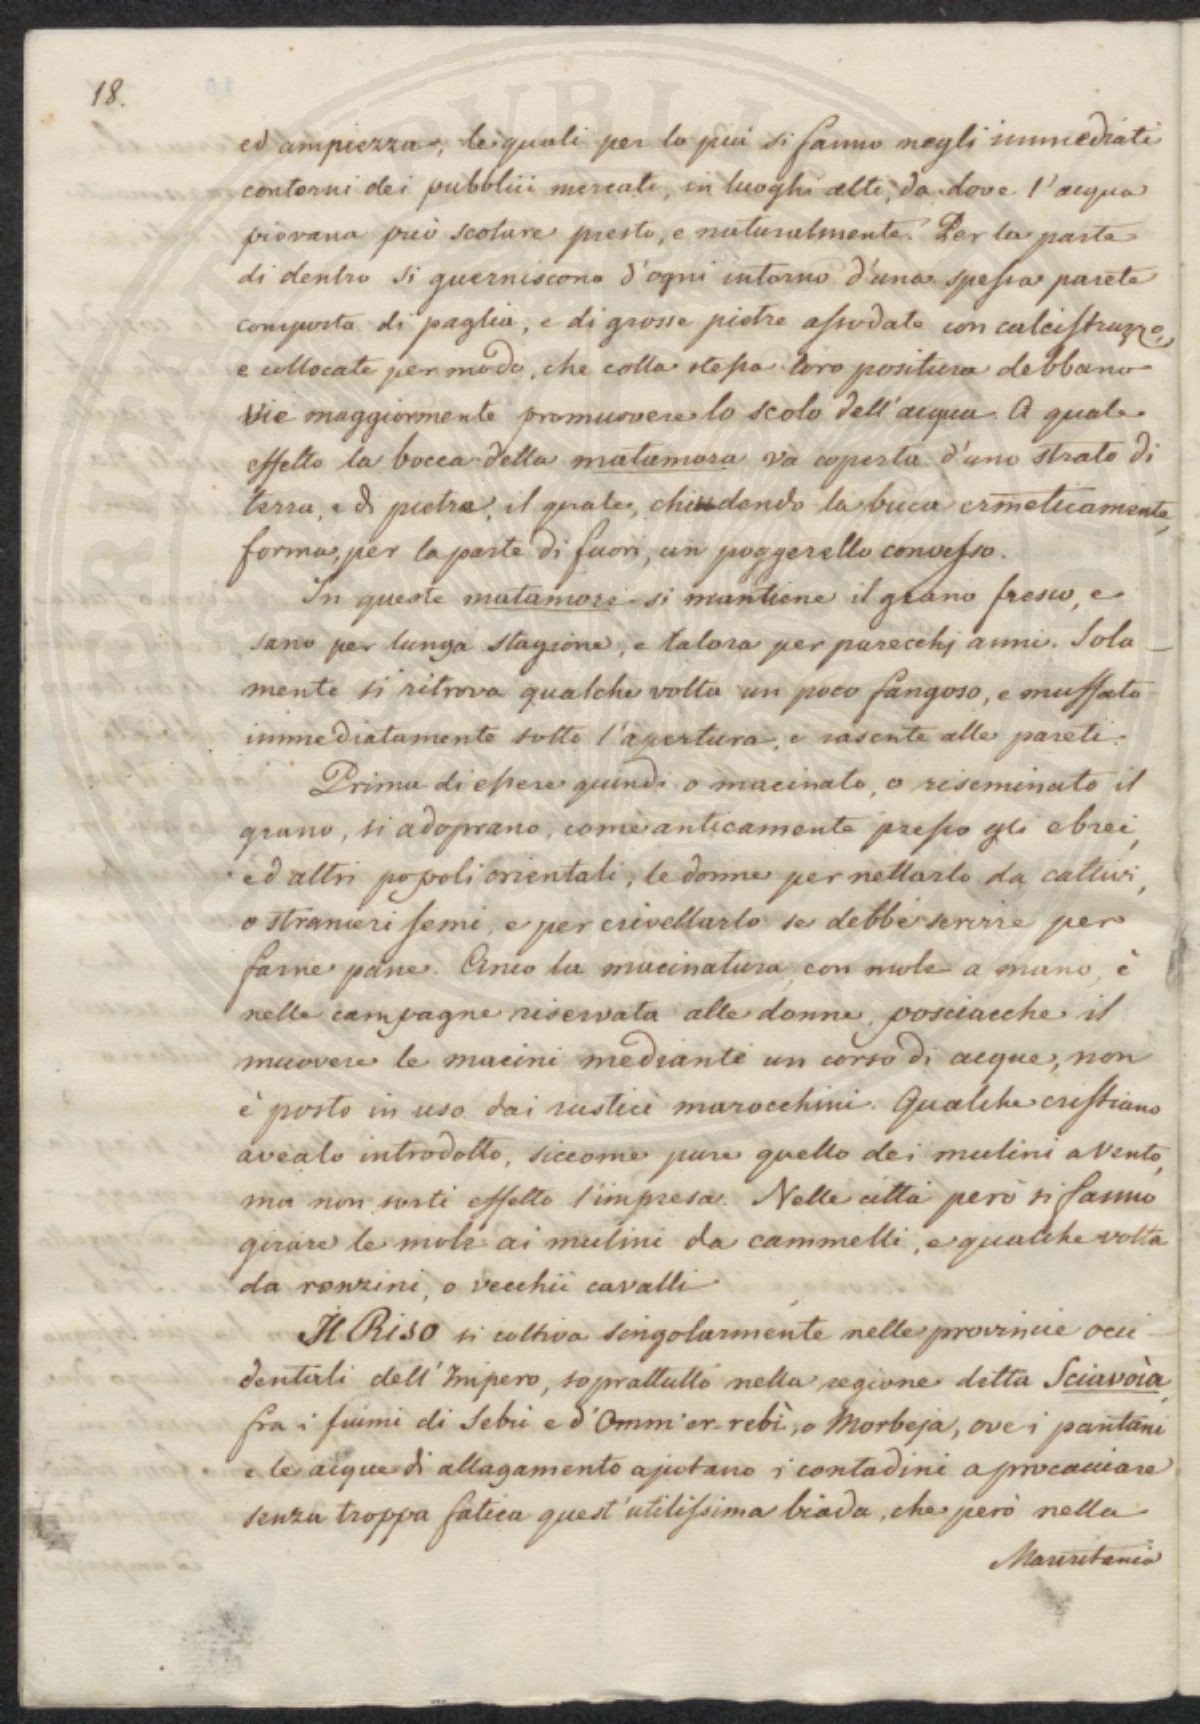 18.
ed ampiezza, le quali per lo più si fanno negli immediati
contorni dei pubblici mercati, in luoghi alti, da dove l'acqua
piovana può scolare presto, e naturalmente. Per la parte
di dentro si guerniscono d'ogni intorno d'una spessa parete
composta di paglia, e di grosse pietre assodate con calcistruzzo,
e collocate per modo, che colla stessa loro positura debbano
vie maggiormente promuovere lo scolo dell'acqua. A quale
effetto la bocca della matamora va coperta d'uno strato di
terra, e di pietre, il quale, chiudendo la buca ermeticamente,
forma, per la parte di fuori, un poggerello convesso.
In queste matamore si mantiene il grano fresco, e
sano per lunga stagione, e talora per parecchj anni. Sola-
mente si ritrova qualche volta un poco fangoso, e muffato
immediatamente sotto l'apertura, e rasente alle pareti.
Prima di essere quindi o macinato, o riseminato il
grano, si adoprano, come anticamente presso gli ebrei,
ed altri popoli orientali, le donne per nettarlo da cattivi,
o stranieri semi, e per crivellarlo se debbe servire per
farne pane. Anco la macinatura con mole a mano, è
nelle campagne riservata alle donne, posciacche il
muovere le macini mediante un corso di acque, non
è posto in uso dai rustici marocchini. Qualche cristiano
avealo introdotto, siccome pure quello dei mulini a vento,
ma non sortì effetto l'impresa. Nelle città però si fanno
girare le mole ai mulini da cammelli, e qualche volta
da ronzini, o vecchii cavalli.
Il Riso si coltiva singolarmente nelle provincie occi-
dentali dell'Impero, soprattutto nella regione detta Sciavoìa,
fra i fiumi di Sebù e d'Omm'er-rebì, o Morbeja, ove i pantani
e le acque di allagamento ajutano i contadini a procacciare
senza troppa fatica quest'utilissima biada, che però nella
Mauritania